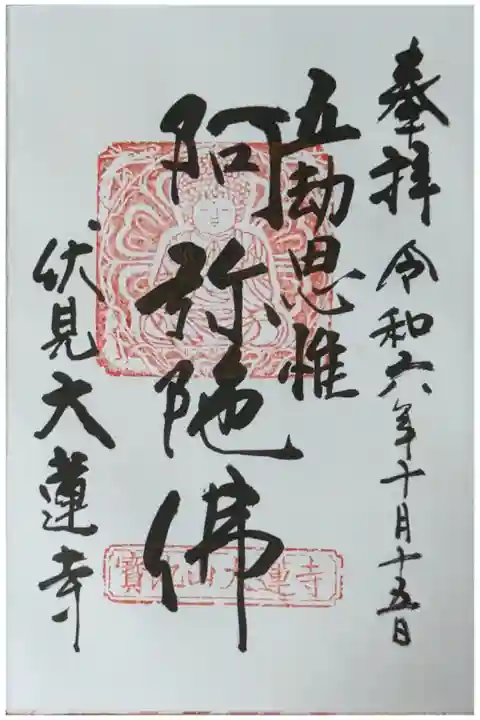 奉拝 令和六年十月十五日
五劫思惟
阿弥陀佛
伏見大蓮寺
大蓮寺